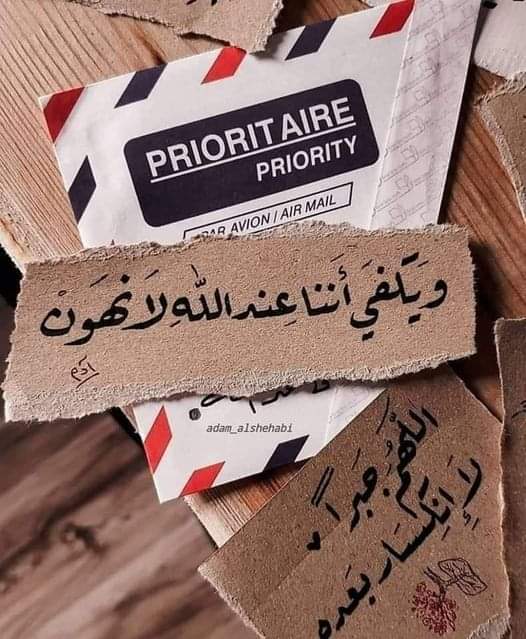 PRIORITAIRE
PRIORITY
PAR AVION / AIR MAIL
ويكفي أننا عند الله لا نهون
آدم
adam_alshehabi
اللهم جبراً
لا إنكسار بعده